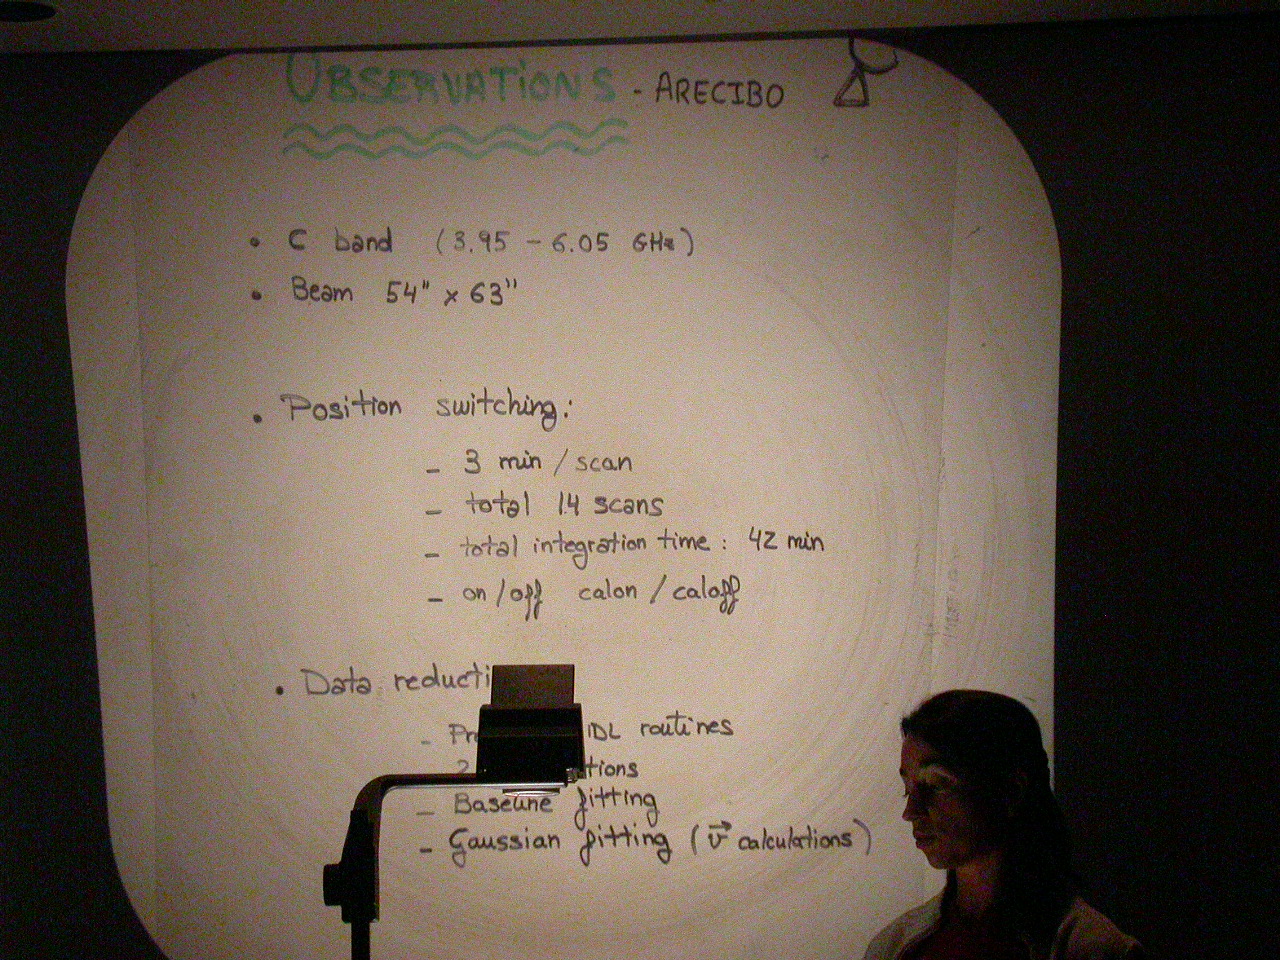 OBSERVATIONS - ARECIBO
• C band (3.95 - 6.05 GHz)
• Beam 54" x 63"
• Position switching:
- 3 min / scan
- total 14 scans
- total integration time: 42 min
- on/off calon / caloff
• Data reducti
- Pr IDL routines
- 2 tions
- Baseline fitting
- Gaussian fitting (v⃗ calculations)